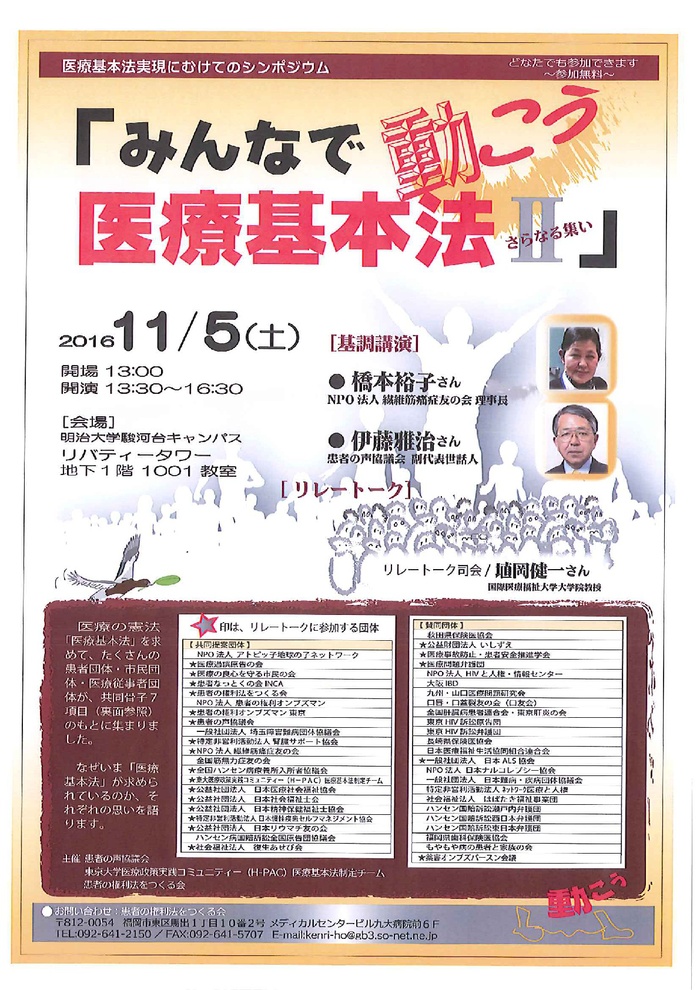 医療基本法実現にむけてのシンポジウム
どなたでも参加できます
～参加無料～
「みんなで動こう
医療基本法Ⅱ」
さらなる集い
2016 11/5(土)
開場 13:00
開演 13:30～16:30
[会場]
明治大学駿河台キャンパス
リバティータワー
地下1階 1001 教室
[基調講演]
● 橋本裕子さん
NPO 法人 繊維筋痛症友の会 理事長
● 伊藤雅治さん
患者の声協議会 副代表世話人
[リレートーク]
リレートーク司会 / 埴岡健一さん
国際医療福祉大学大学院教授
医療の憲法
「医療基本法」を求
めて、たくさんの
患者団体・市民団
体・医療従事者団
体が、共同骨子7
項目（裏面参照）
のもとに集まりま
した。
なぜいま「医療
基本法」が求めら
れているのか、そ
れぞれの思いを語
ります。
★印は、リレートークに参加する団体
【共同提案団体】
NPO 法人 アトピッ子地球の子ネットワーク
★医療過誤原告の会
★医療の良心を守る市民の会
★患者なっとくの会 INCA
★患者の権利法をつくる会
NPO 法人 患者の権利オンブズマン
★患者の権利オンブズマン 東京
★患者の声協議会
一般社団法人 埼玉障害難病団体協議会
★特定非営利活動法人 腎臓サポート協会
★NPO 法人 線維筋痛症友の会
全国筋無力症友の会
★全国ハンセン病療養所入所者協議会
★東大医療政策実践コミュニティー（H-PAC）医療基本法制定チーム
★公益社団法人 日本医療社会福祉協会
★公益社団法人 日本社会福祉士会
★公益社団法人 日本精神保健福祉士協会
★特定非営利活動法人 日本慢性疾患セルフマネジメント協会
★公益社団法人 日本リウマチ友の会
ハンセン病国賠訴訟全国原告団協議会
★社会福祉法人 復生あせび会
【賛同団体】
秋田県保険医協会
★公益財団法人 いしずえ
★医療事故防止・患者安全推進学会
★医療問題弁護団
NPO 法人 HIV と人権・情報センター
大阪 IBD
九州・山口医療問題研究会
口唇・口蓋裂友の会（口友会）
全国肝臓病患者連合会・東京肝炎の会
東京 HIV 訴訟原告団
東京 HIV 訴訟弁護団
長崎県保険医協会
日本医療福祉生活協同組合連合会
★一般社団法人 日本 ALS 協会
NPO 法人 日本ナルコレプシー協会
一般社団法人 日本難病・疾病団体協議会
特定非営利活動法人 ネットワーク医療と人権
社会福祉法人 はばたき福祉事業団
ハンセン国賠訴訟瀬戸内弁護団
ハンセン国賠訴訟西日本弁護団
ハンセン国賠訴訟東日本弁護団
福岡県歯科保険医協会
もやもや病の患者と家族の会
★薬害オンブズパースン会議
主催 患者の声協議会
東京大学医療政策実践コミュニティー（H-PAC）医療基本法制定チーム
患者の権利法をつくる会
動こう
●お問い合わせ：患者の権利法をつくる会
〒812-0054 福岡市東区馬出1丁目10番2号 メディカルセンタービル九大病院前6F
TEL:092-641-2150 / FAX:092-641-5707 E-mail:kenri-ho@gb3.so-net.ne.jp